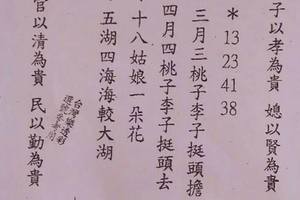 子以孝為貴 媳以賢為貴
*13 23 41 38
三月三桃子李子挺頭擔
四月四桃子李子挺頭去
十八姑娘一朵花
五湖四海海較大湖
官以清為貴 民以勤為貴